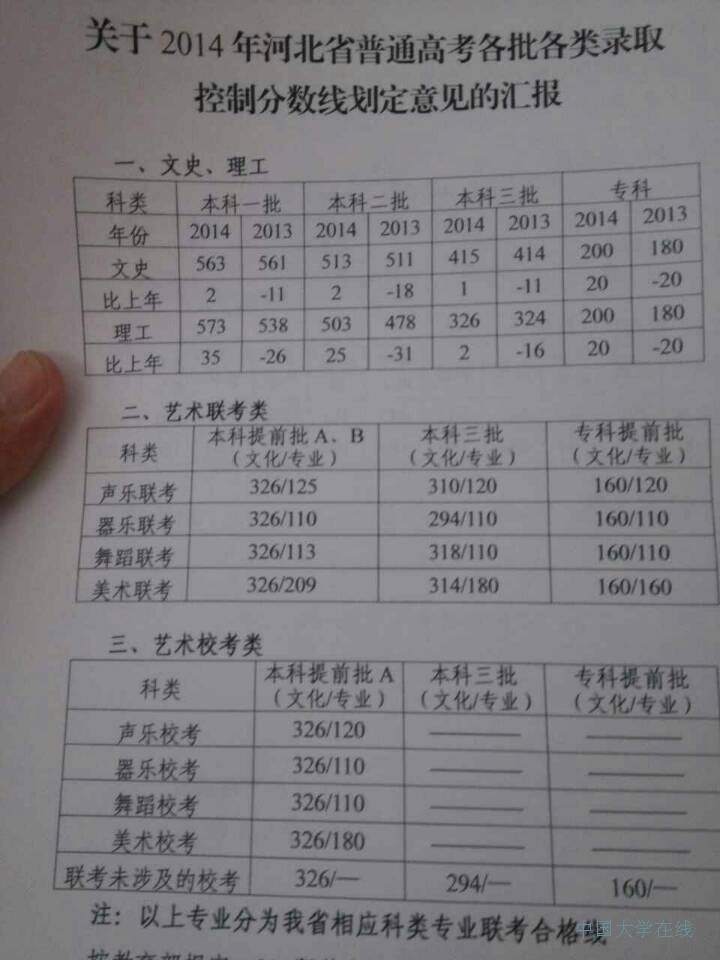 关于2014年河北省普通高考各批各类录取
控制分数线划定意见的汇报
一、文史、理工
科类 本科一批 本科二批 本科三批 专科
年份 2014 2013 2014 2013 2014 2013 2014 2013
文史 563 561 513 511 415 414 200 180
比上年 2 -11 2 -18 1 -11 20 -20
理工 573 538 503 478 326 324 200 180
比上年 35 -26 25 -31 2 -16 20 -20
二、艺术联考类
科类 本科提前批A、B (文化/专业) 本科三批 (文化/专业) 专科提前批 (文化/专业)
声乐联考 326/125 310/120 160/120
器乐联考 326/110 294/110 160/110
舞蹈联考 326/113 318/110 160/110
美术联考 326/209 314/180 160/160
三、艺术校考类
科类 本科提前批A (文化/专业) 本科三批 (文化/专业) 专科提前批 (文化/专业)
声乐校考 326/120 —— ——
器乐校考 326/110 —— ——
舞蹈校考 326/110 —— ——
美术校考 326/180 —— ——
联考未涉及的校考 326/— 294/— 160/—
注：以上专业分为我省相应科类专业联考合格线
中国大学在线